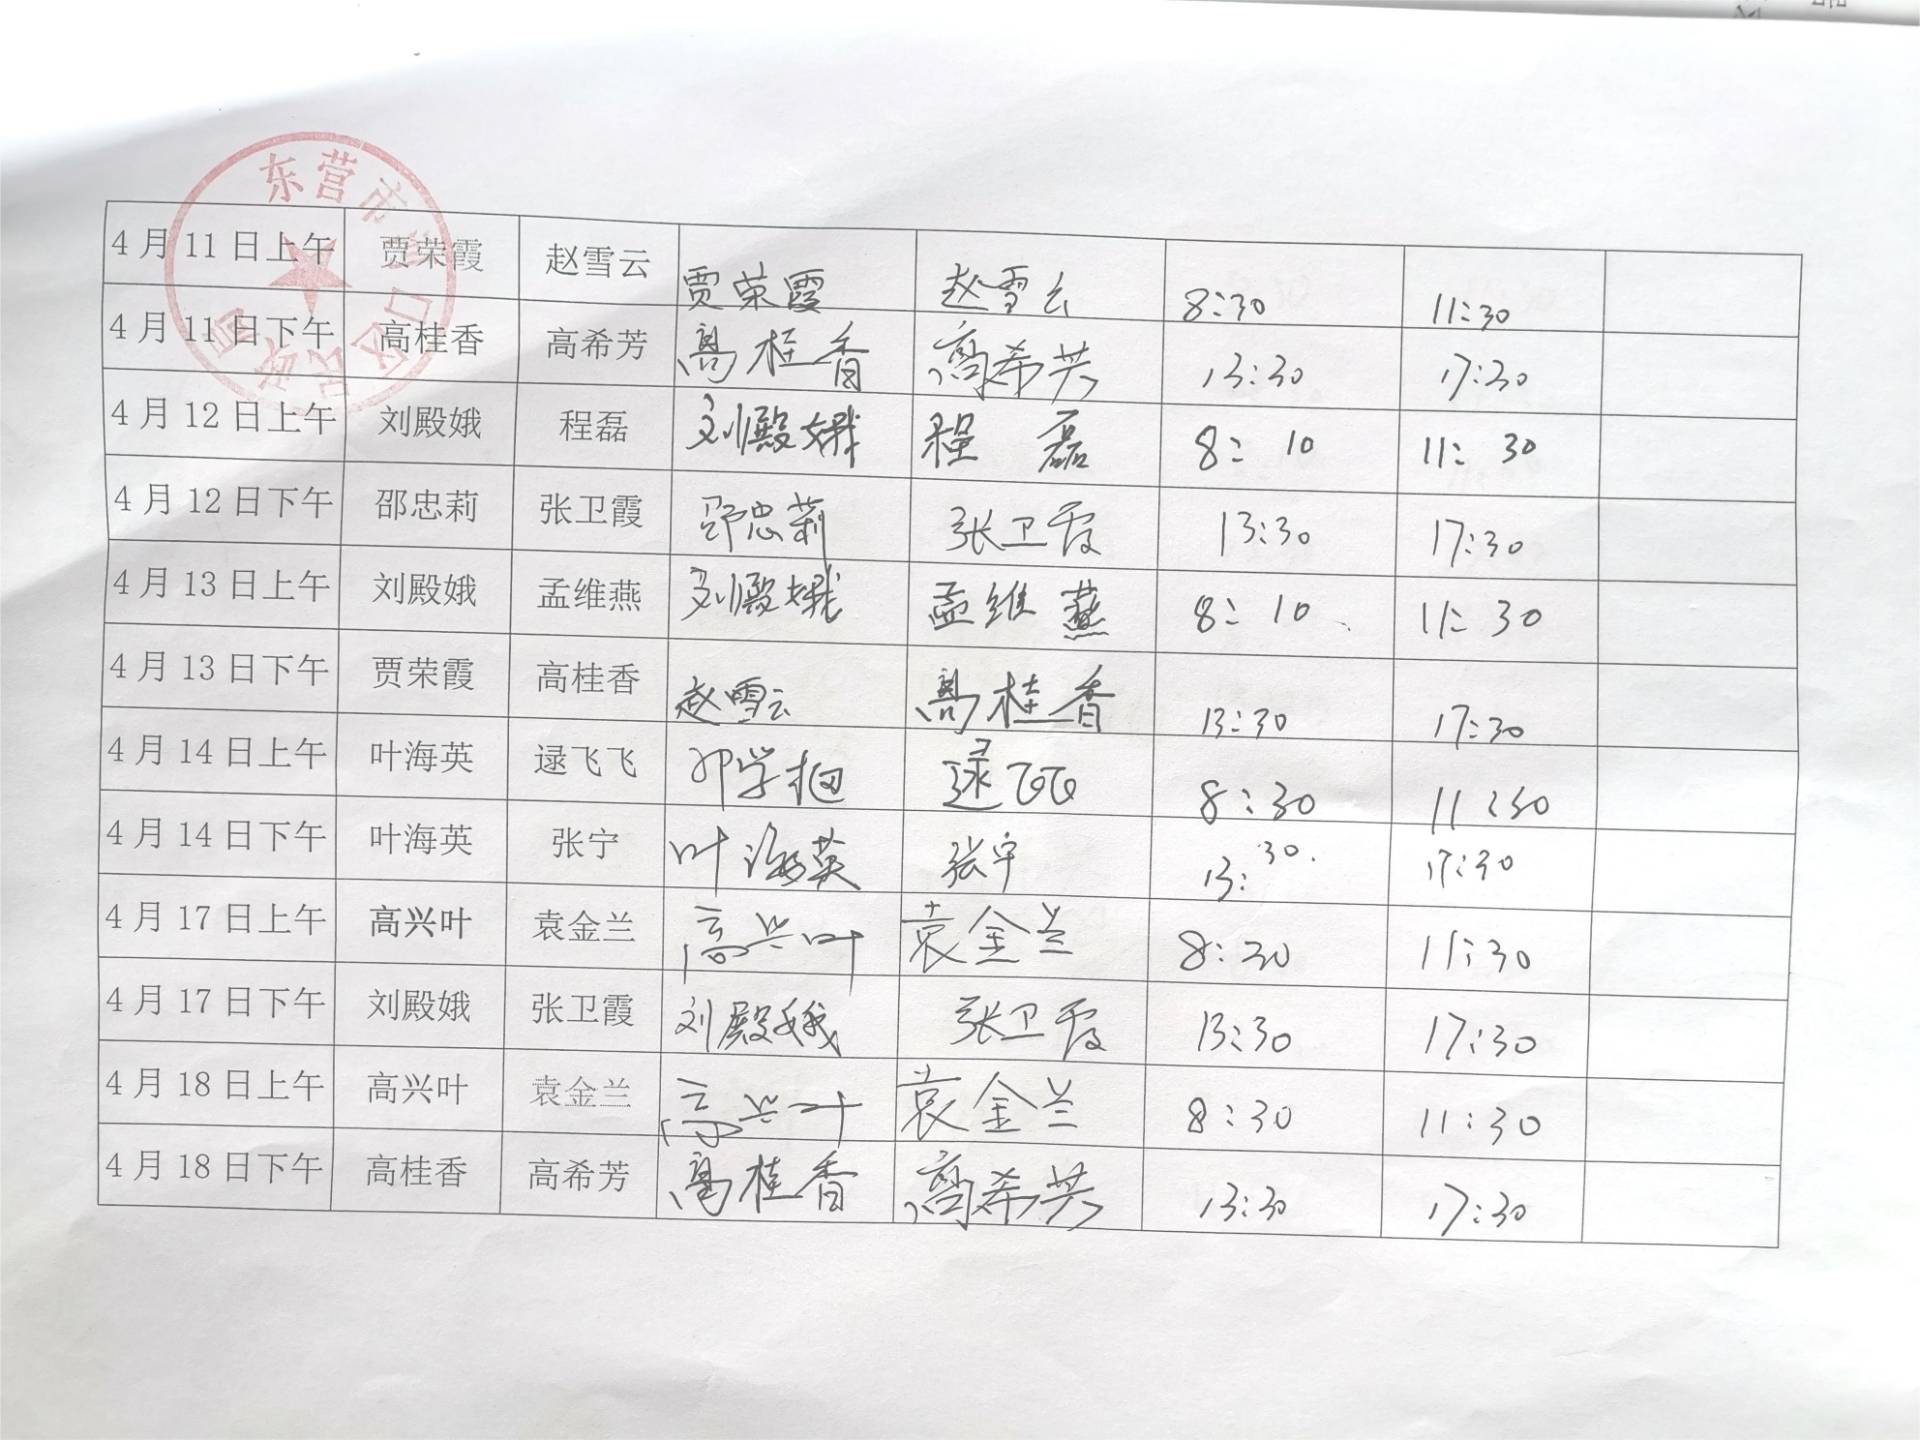 东营市河口区民政局
4月11日上午 贾荣霞 赵雪云 贾荣霞 赵雪云 8:30 11:30
4月11日下午 高桂香 高希芳 高桂香 高希芳 13:30 17:30
4月12日上午 刘殿娥 程磊 刘殿娥 程磊 8:10 11:30
4月12日下午 邵忠莉 张卫霞 邵忠莉 张卫霞 13:30 17:30
4月13日上午 刘殿娥 孟维燕 刘殿娥 孟维燕 8:10 11:30
4月13日下午 贾荣霞 高桂香 赵雪云 高桂香 13:30 17:30
4月14日上午 叶海英 逯飞飞 逯飞飞 8:30 11:30
4月14日下午 叶海英 张宁 叶海英 张宁 13:30 17:30
4月17日上午 高兴叶 袁金兰 高兴叶 袁金兰 8:30 11:30
4月17日下午 刘殿娥 张卫霞 刘殿娥 张卫霞 13:30 17:30
4月18日上午 高兴叶 袁金兰 高兴叶 袁金兰 8:30 11:30
4月18日下午 高桂香 高希芳 高桂香 高希芳 13:30 17:30